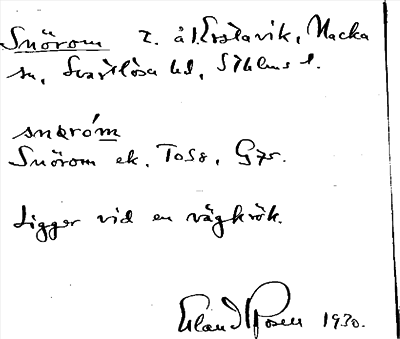 Snörom t. å l. Erstavik, Nacka
sn, Svartlösa hd, Sthlms l.
snøróm
Snörom ek. To58, G75.
Ligger vid en vägkrök.
Erland Rosell 1930.